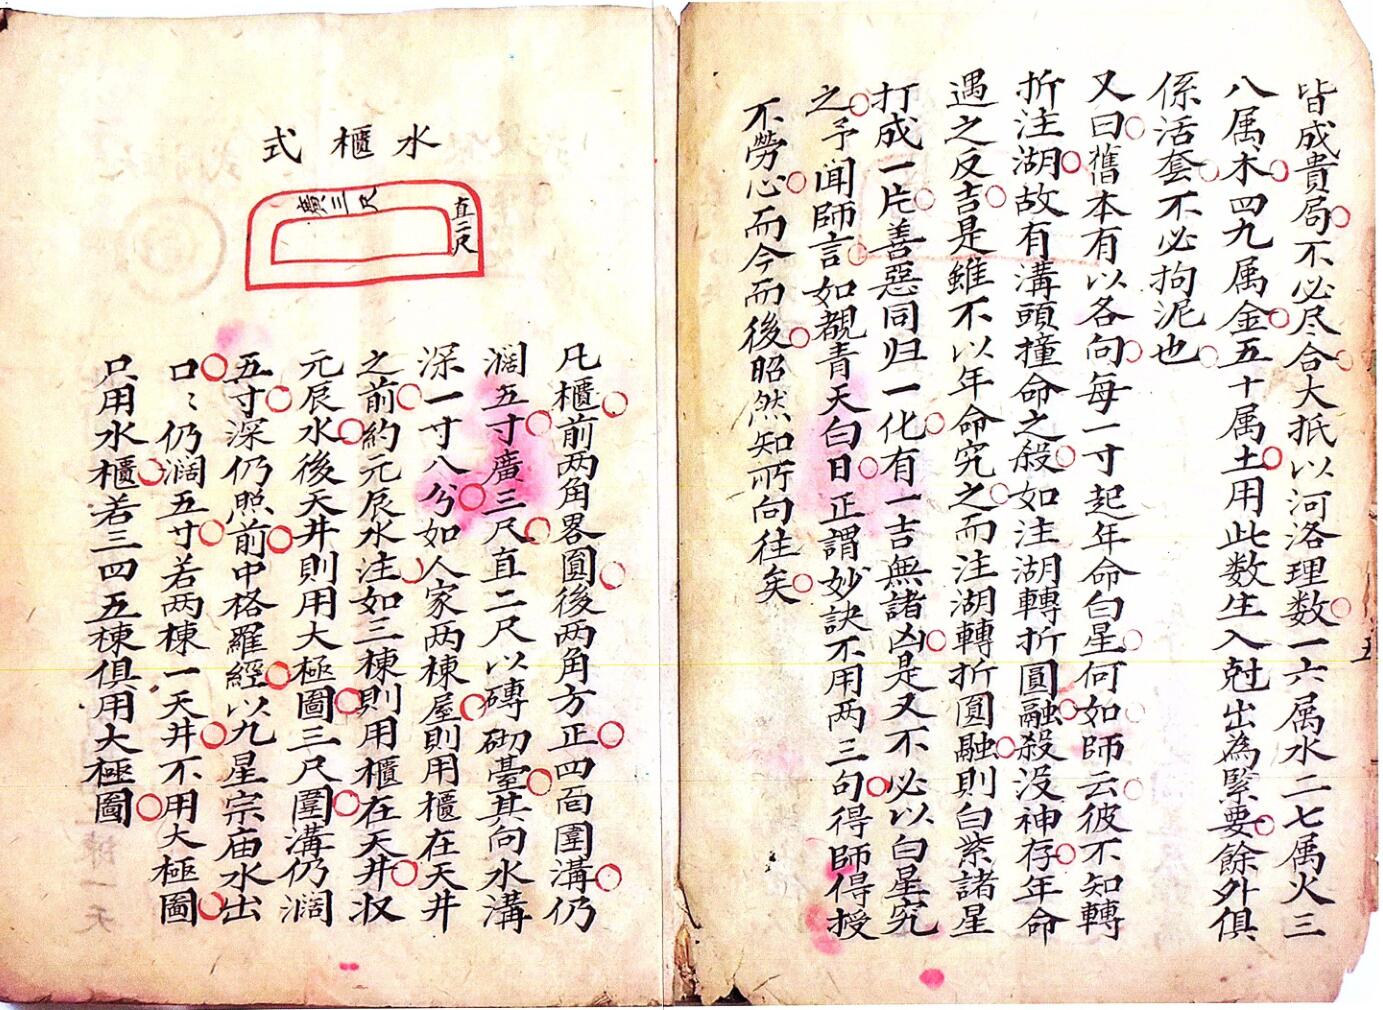 皆成貴局不必尽合大抵以河洛理数一六属水二七属火三
八属木四九属金五十属土用此数生入尅出為緊要餘外俱
係活套不必拘泥也
又曰舊本有以各向每一寸起年命白星何如師云彼不知轉
折注湖故有溝頭撞命之殺如注湖轉折圓融殺没神存年命
遇之反吉是雖不以年命究之而注湖轉折圓融則白紫諸星
打成一片善惡同归一化有一吉無諸凶是又不必以白星究
之予聞師言如覩青天白日正謂妙訣不用两三句得師得授
不勞心而今而後昭然知所向往矣
五
水櫃式
廣三尺
直二尺
凡櫃前两角畧圓後两角方正四面圍溝仍
濶五寸廣三尺直二尺以磚砌臺其向水溝
深一寸八分如人家两棟屋則用櫃在天井
之前約元辰水注如三棟則用櫃在天井収
元辰水後天井則用大極圖三尺圍溝仍濶
五寸深仍照前中格羅經以九星宗庙水出
口〻仍濶五寸若两棟一天井不用大極圖
只用水櫃若三四五棟俱用大極圖